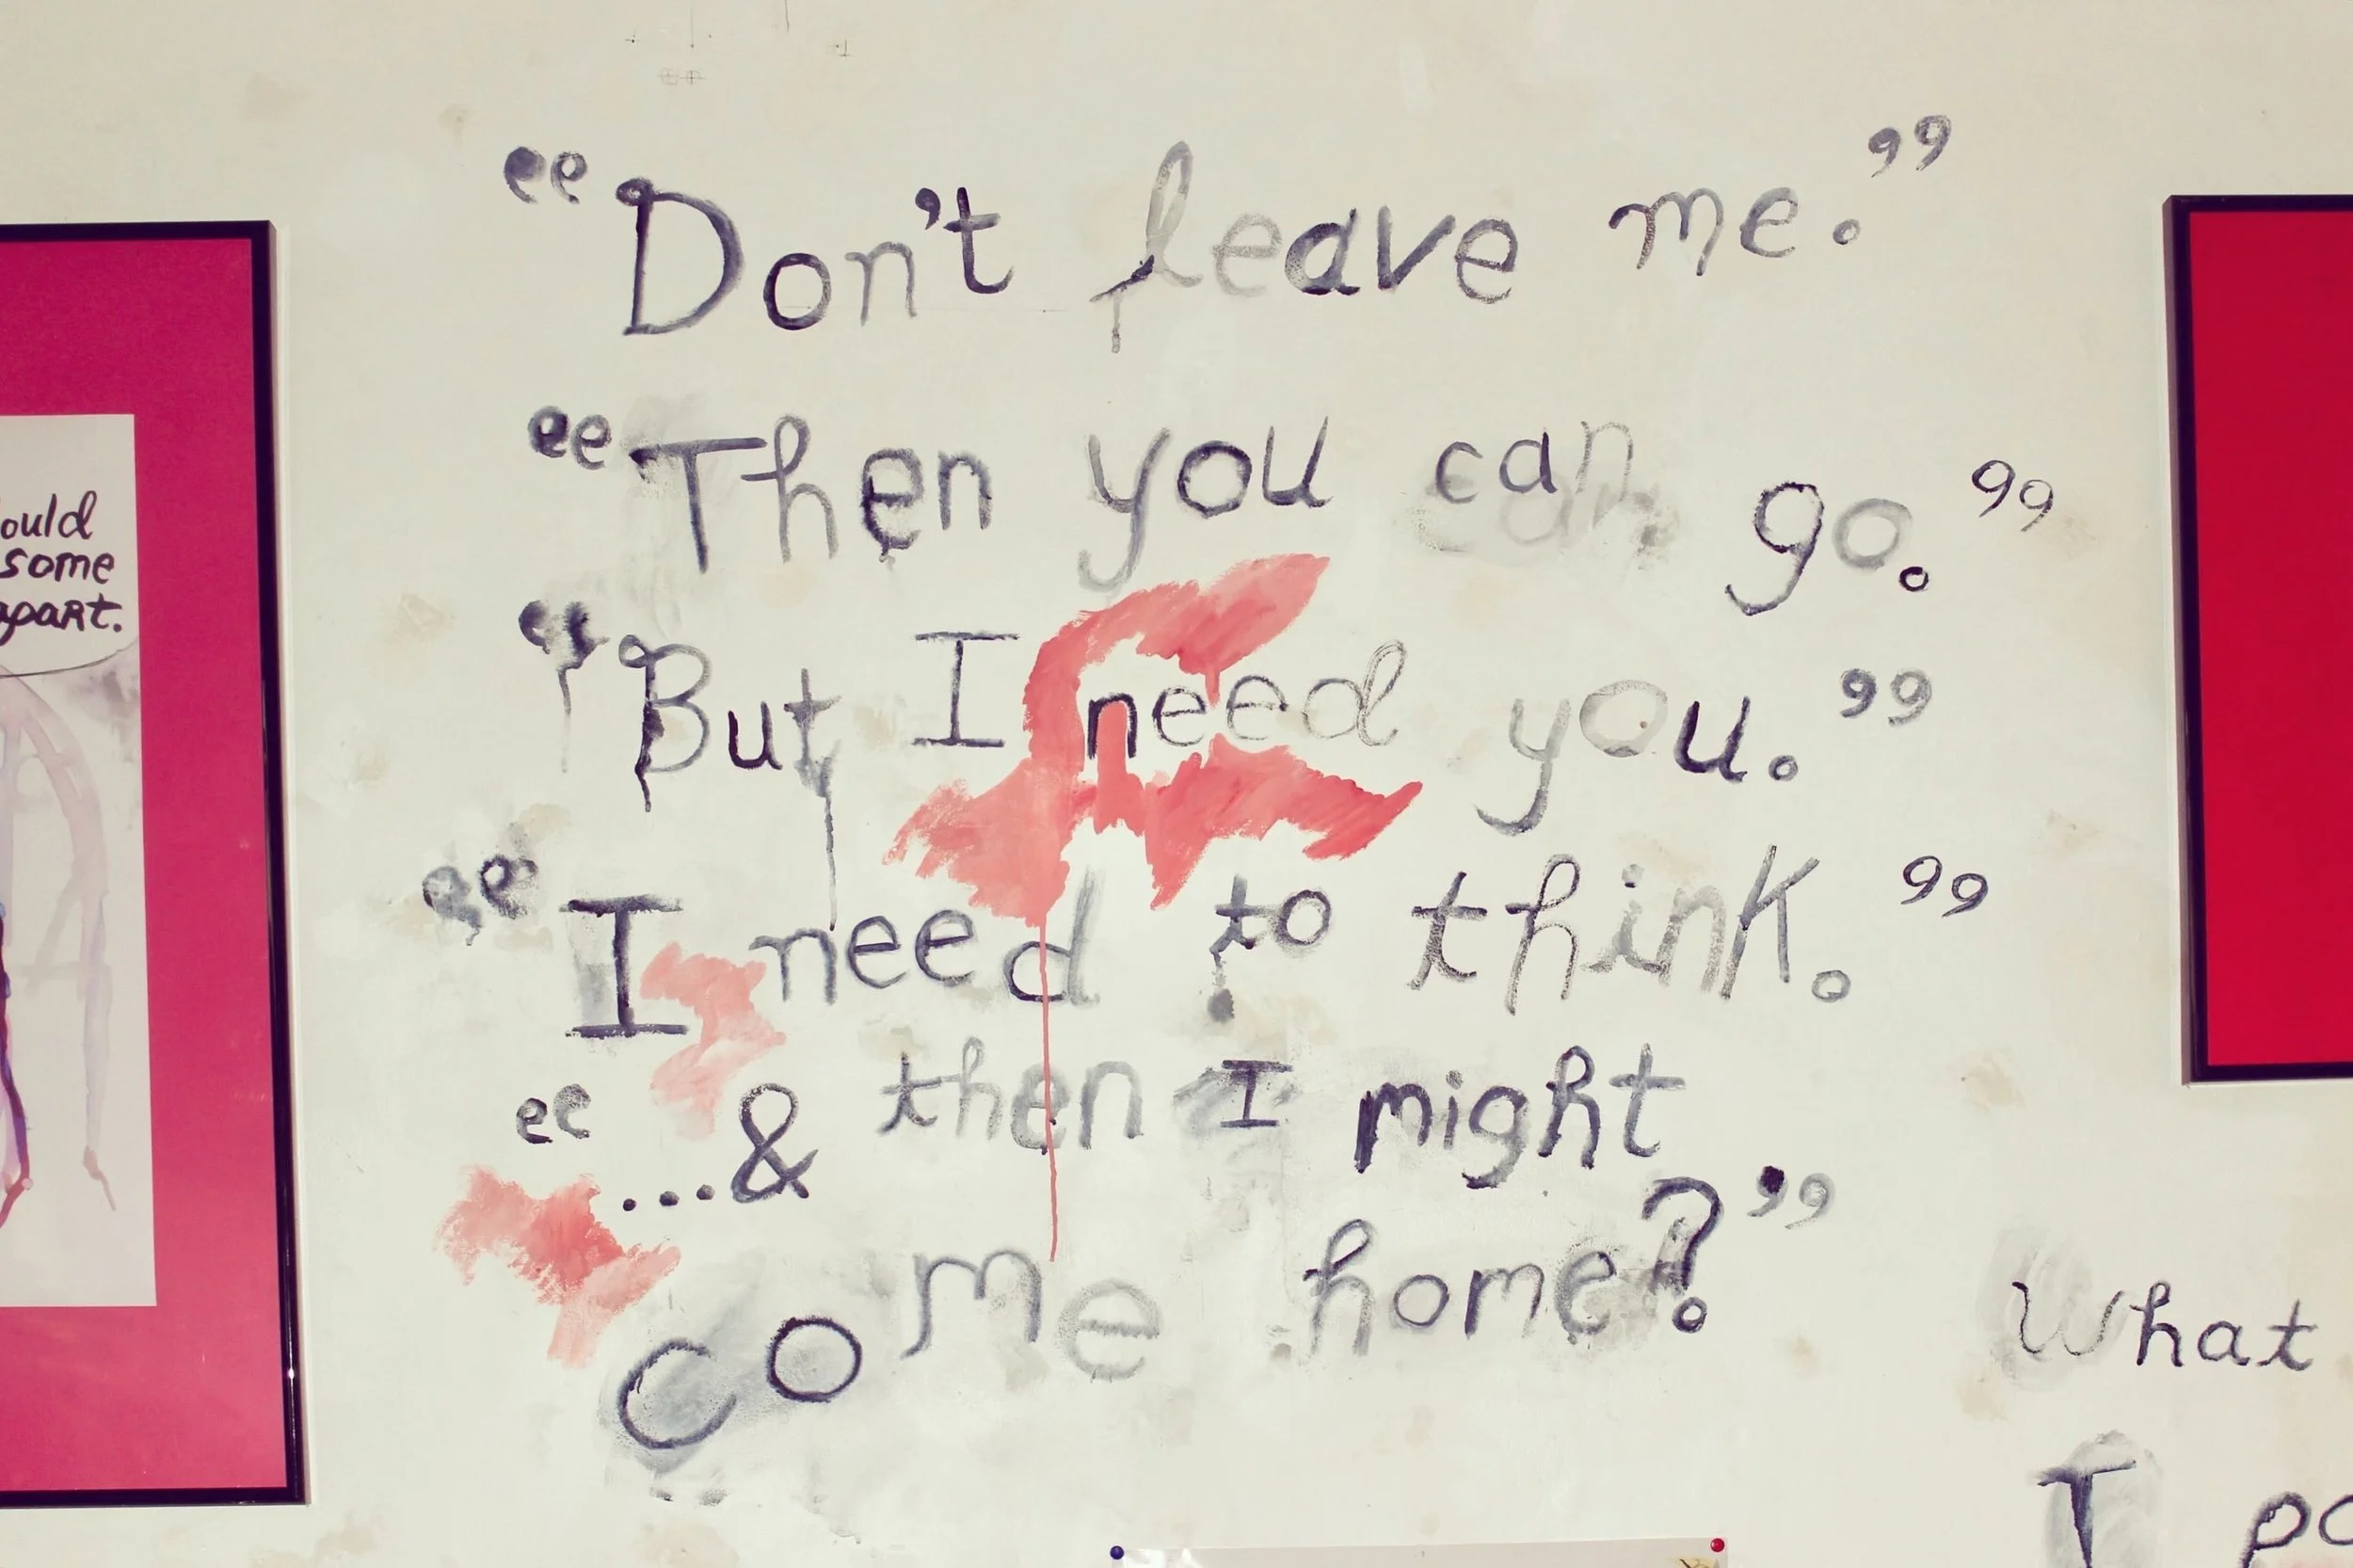 “Don't leave me.”
“Then you can go.”
“But I need you.”
“I need to think.”
“...& then I might
come home?”
ould
some
apart.
What
I po